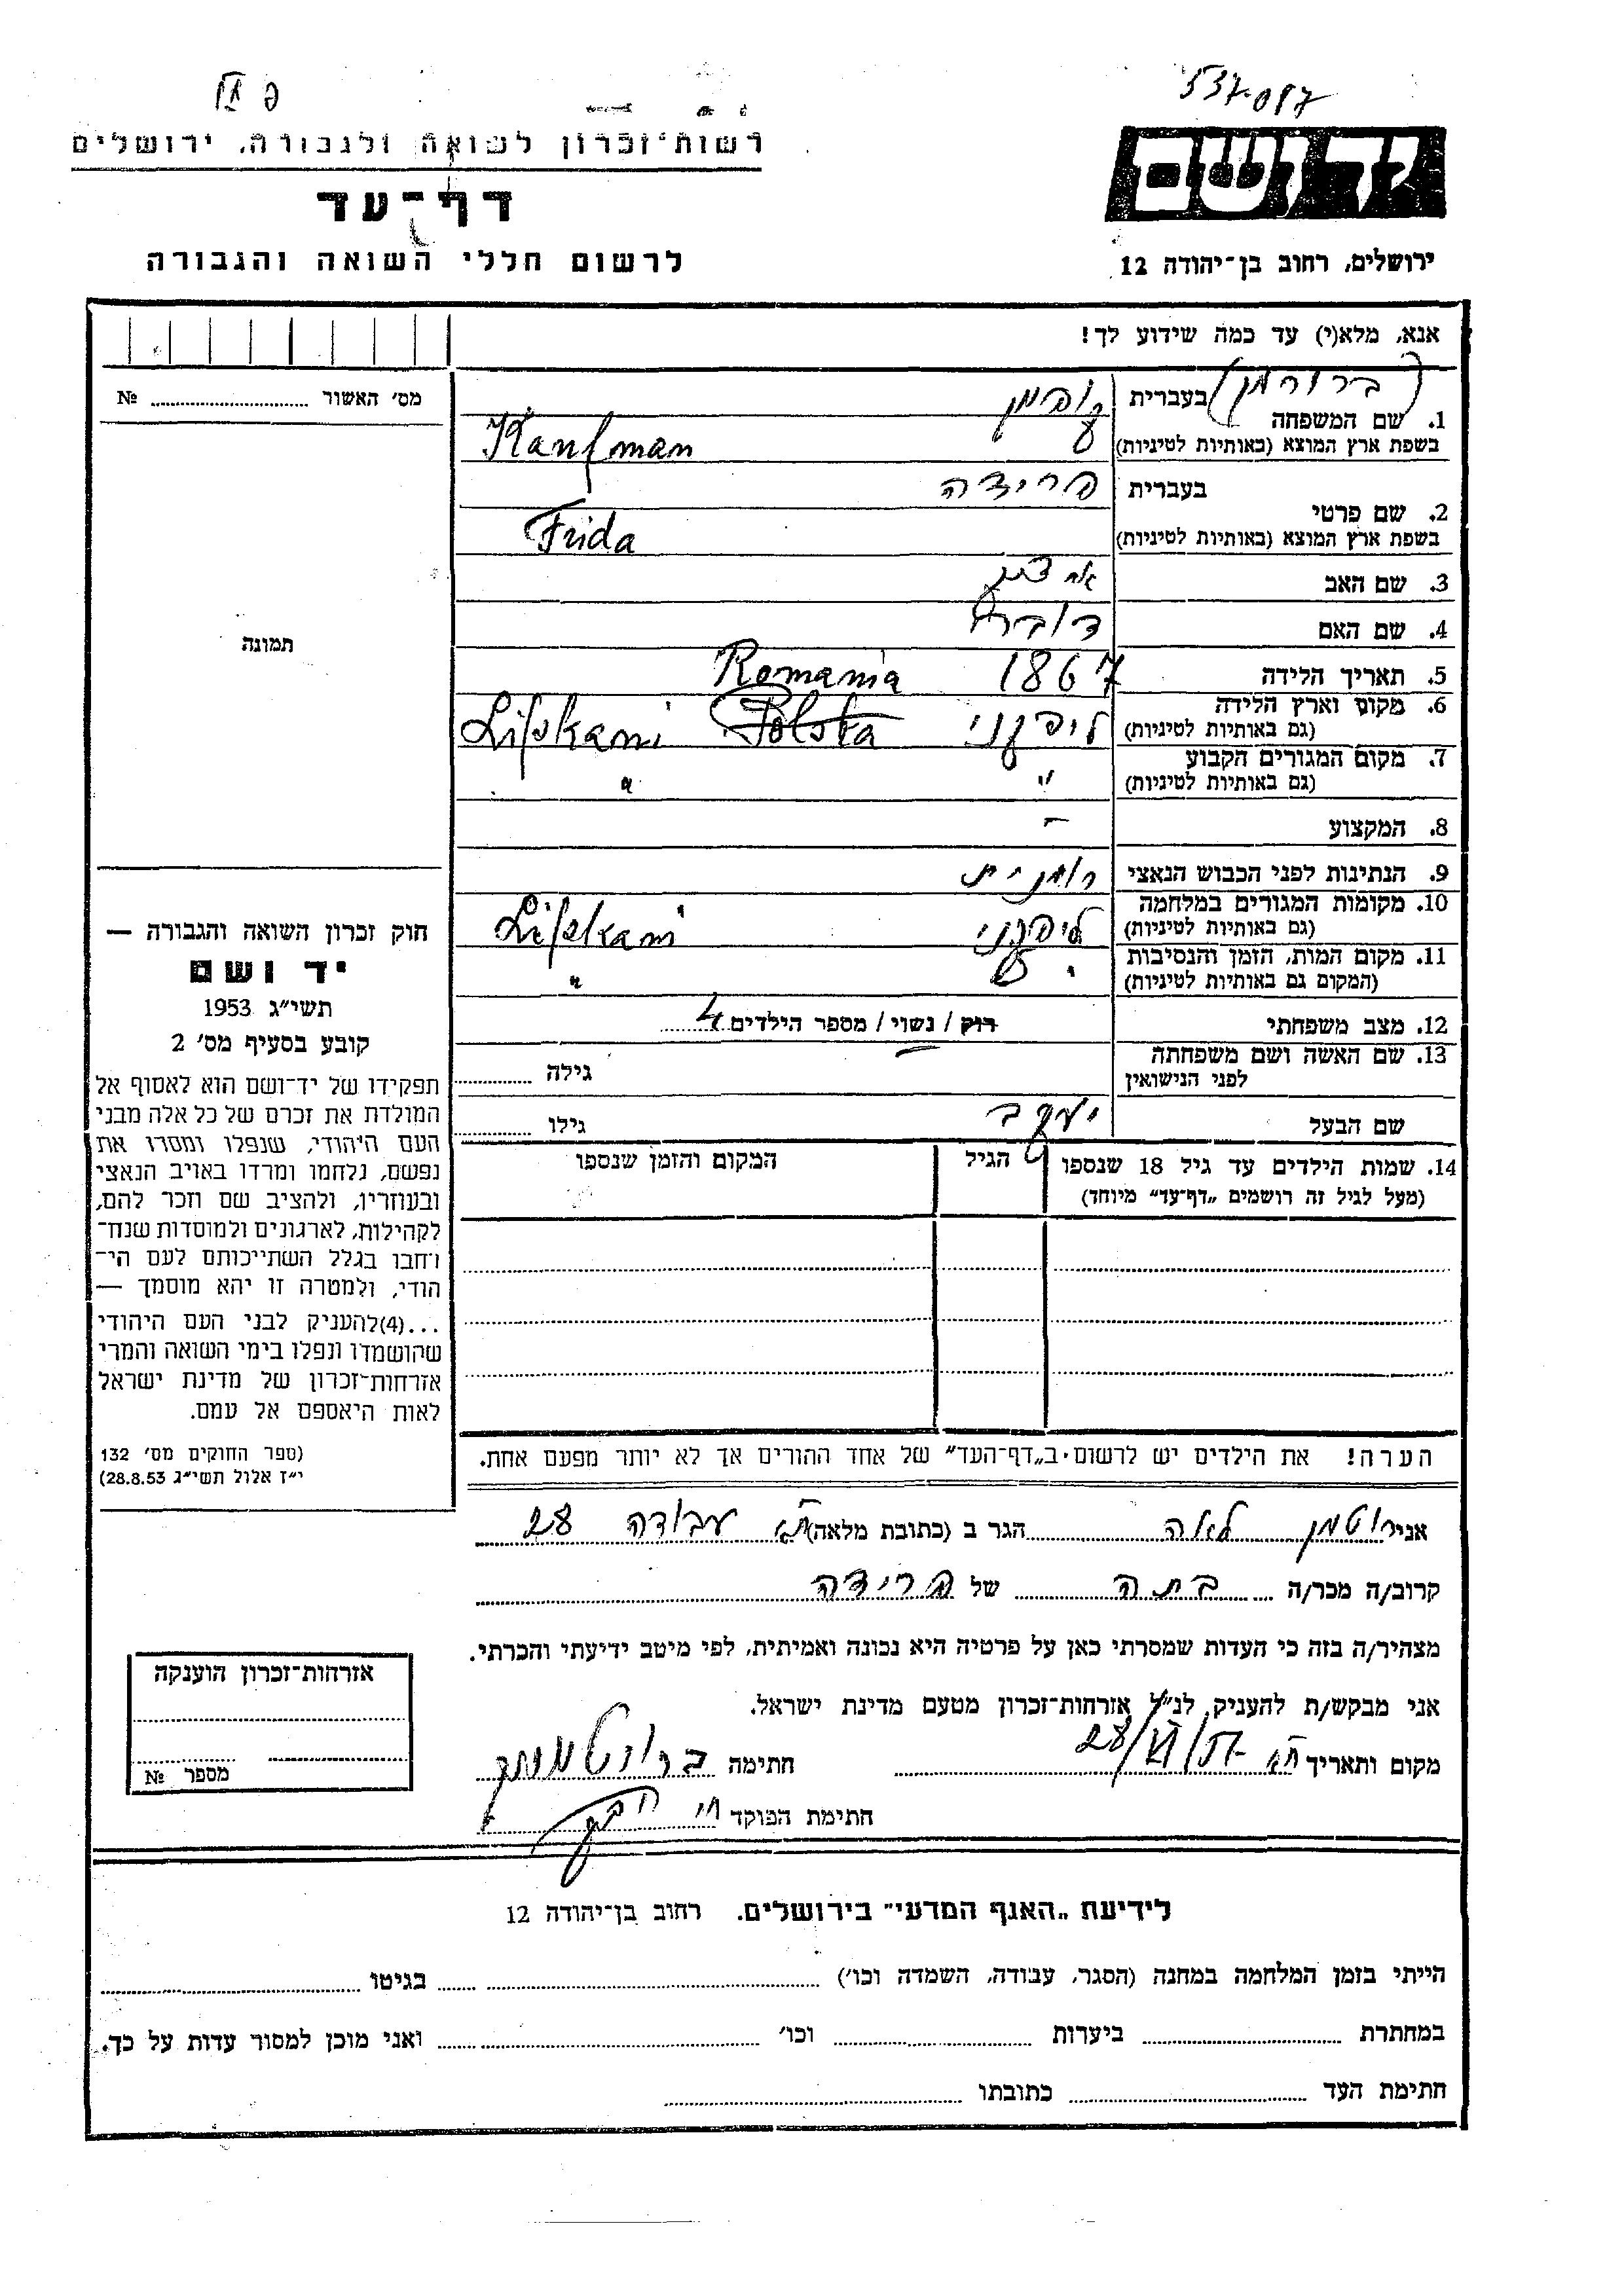 פ VI
537087
רשות־זכרון לשואה ולגבורה, ירושלים
יד ושם
דף־עד
לרשום חללי השואה והגבורה
ירושלים, רחוב בן־יהודה 12
אנא, מלא(י) עד כמה שידוע לך!
מס׳ האשור № ..........
1. שם המשפחה
בעברית
בשפת ארץ המוצא (באותיות לטיניות) Kaufman
בעברית פרידה
2. שם פרטי
בשפת ארץ המוצא (באותיות לטיניות) Frida
3. שם האב
4. שם האם
5. תאריך הלידה 1867 Romania
6. מקום וארץ הלידה
(גם באותיות לטיניות) ליפקני Polska Lipkani
7. מקום המגורים הקבוע
(גם באותיות לטיניות) " "
8. המקצוע –
9. הנתינות לפני הכבוש הנאצי רומנית
10. מקומות המגורים במלחמה
(גם באותיות לטיניות) ליפקני Lipkani
11. מקום המות, הזמן והנסיבות
(המקום גם באותיות לטיניות) "
12. מצב משפחתי רוק / נשוי / מספר הילדים 4
13. שם האשה ושם משפחתה
לפני הנישואין גילה ..........
שם הבעל יעקב גילו ..........
14. שמות הילדים עד גיל 18 שנספו
(מעל לגיל זה רושמים „דף־עד” מיוחד)
הגיל
המקום והזמן שנספו
תמונה
חוק זכרון השואה והגבורה —
יד ושם
תשי״ג 1953
קובע בסעיף מס׳ 2
תפקידו של יד־ושם הוא לאסוף אל
המולדת את זכרם של כל אלה מבני
העם היהודי, שנפלו ומסרו את
נפשם, נלחמו ומרדו באויב הנאצי
ובעוזריו, ולהציב שם וזכר להם,
לקהילות, לארגונים ולמוסדות שנח־
רחבו בגלל השתייכותם לעם הי־
הודי, ולמטרה זו יהא מוסמך —
...(4)להעניק לבני העם היהודי
שהושמדו ונפלו בימי השואה והמרי
אזרחות־זכרון של מדינת ישראל
לאות היאספם אל עמם.
(ספר החוקים מס׳ 132
י״ז אלול תשי״ג 28.8.53)
הערה! את הילדים יש לרשום ב„דף־העד” של אחד ההורים אך לא יותר מפעם אחת.
אני לאה הגר ב (כתובת מלאה) ת״א עבודה 28
קרוב/ה מכר/ה בתה של פרידה
מצהיר/ה בזה כי העדות שמסרתי כאן על פרטיה היא נכונה ואמיתית, לפי מיטב ידיעתי והכרתי.
אני מבקש/ת להעניק לנ״ל אזרחות־זכרון מטעם מדינת ישראל.
מקום ותאריך ת״א חתימה
חתימת הפוקד
אזרחות־זכרון הוענקה
מספר №
לידיעת „האגף המדעי” בירושלים. רחוב בן־יהודה 12
הייתי בזמן המלחמה במחנה (הסגר, עבודה, השמדה וכו׳) .......... בגיטו ..........
במחתרת .......... ביערות .......... וכו׳ .......... ואני מוכן למסור עדות על כך.
חתימת העד .......... כתובתו ..........